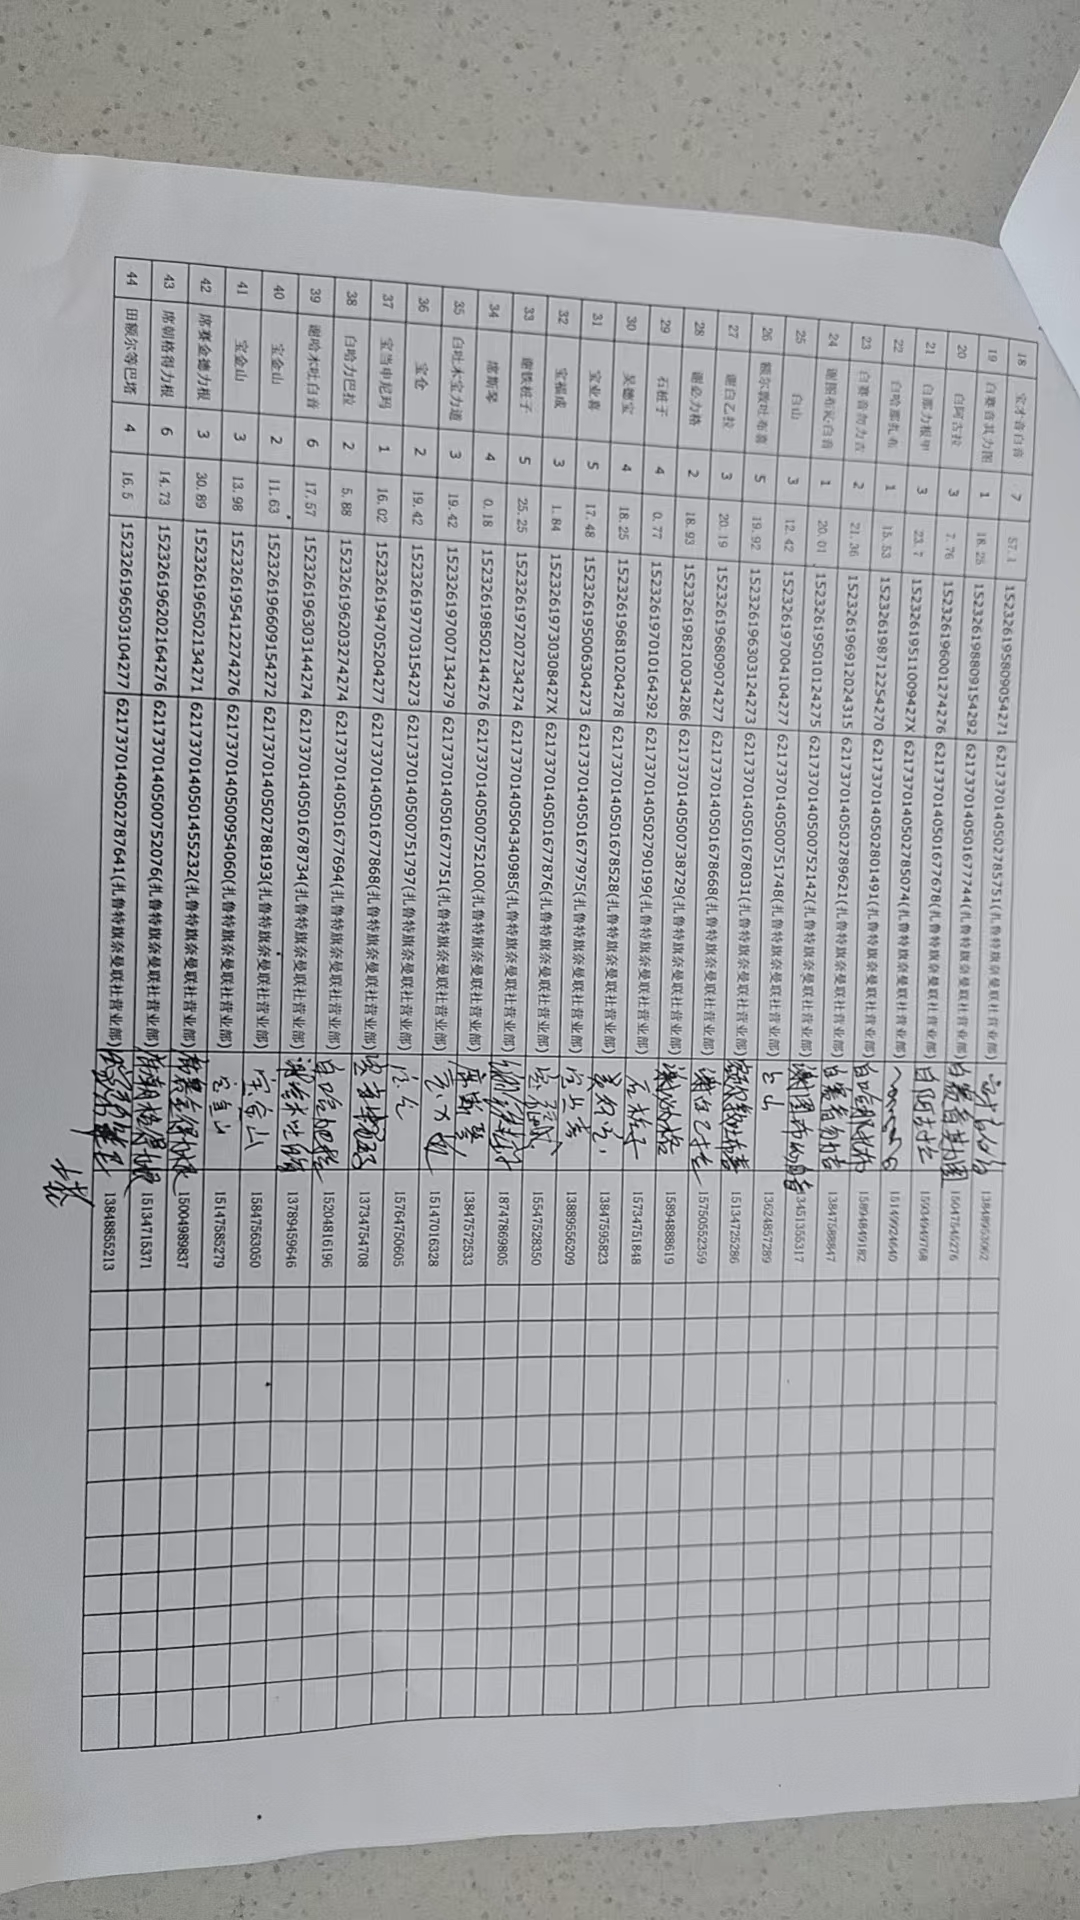 18 宝才音白音 7 57.1 152326195809054271 6217370140502785751(扎鲁特旗奈曼联社营业部) 13848953062
19 白赛音其力图 1 18.25 152326198809154292 6217370140501677744(扎鲁特旗奈曼联社营业部) 白赛音其力图 15047545276
20 白阿古拉 3 7.76 152326196001274276 6217370140501677678(扎鲁特旗奈曼联社营业部) 白阿古拉 15934949768
21 白那力根甲 3 23.7 15232619511009427X 6217370140502785074(扎鲁特旗奈曼联社营业部) 15149924640
22 白哈那扎布 1 15.53 152326198712254270 6217370140502801491(扎鲁特旗奈曼联社营业部) 白哈那扎布 15894849182
23 白赛音勿力吉 2 21.36 152326196912024315 6217370140502789621(扎鲁特旗奈曼联社营业部) 白赛音勿力吉 13847588847
24 谢图布瓦白音 1 20.01 152326195010124275 6217370140500752142(扎鲁特旗奈曼联社营业部) 13451355317
25 白山 3 12.42 152326197004104277 6217370140500751748(扎鲁特旗奈曼联社营业部) 白山 13624857289
26 额尔敦吐布喜 5 19.92 152326196303124273 6217370140501678031(扎鲁特旗奈曼联社营业部) 额尔敦吐布喜 15134725286
27 谢白乙拉 3 20.19 152326196809074277 6217370140501678668(扎鲁特旗奈曼联社营业部) 谢白乙拉 15750552359
28 谢必力格 2 18.93 152326198210034286 6217370140500738729(扎鲁特旗奈曼联社营业部) 谢必力格 15894888619
29 石桩子 4 0.77 152326197010164292 6217370140502790199(扎鲁特旗奈曼联社营业部) 石桩子 15734751848
30 吴德宝 4 18.25 152326196810204278 6217370140501678528(扎鲁特旗奈曼联社营业部) 13847595823
31 宝业喜 5 17.48 152326195006304273 6217370140501677975(扎鲁特旗奈曼联社营业部) 宝业喜 13889556209
32 宝福成 3 1.84 15232619730308427X 6217370140501677876(扎鲁特旗奈曼联社营业部) 宝福成 15547528350
33 谢铁桩子 5 25.25 152326197207234274 6217370140504340985(扎鲁特旗奈曼联社营业部) 谢铁桩子 18747869805
34 席斯琴 4 0.18 152326198502144276 6217370140500752100(扎鲁特旗奈曼联社营业部) 席斯琴 13847572533
35 白吐木宝力道 3 19.42 152326197007134279 6217370140501677751(扎鲁特旗奈曼联社营业部) 15147016328
36 宝仓 2 19.42 152326197703154273 6217370140500751797(扎鲁特旗奈曼联社营业部) 宝仓 15764750605
37 宝当申尼玛 1 16.02 152326194705204277 6217370140501677868(扎鲁特旗奈曼联社营业部) 13734754708
38 白哈力巴拉 2 5.88 152326196203274274 6217370140501677694(扎鲁特旗奈曼联社营业部) 白哈力巴拉 15204816196
39 谢哈木吐白音 6 17.57 152326196303144274 6217370140501678734(扎鲁特旗奈曼联社营业部) 谢哈木吐白音 13789459646
40 宝金山 2 11.63 152326196609154272 6217370140502788193(扎鲁特旗奈曼联社营业部) 宝金山 15847563050
41 宝金山 3 13.98 152326195412274276 6217370140500954060(扎鲁特旗奈曼联社营业部) 宝金山 15147585279
42 席赛金德力根 3 30.89 152326196502134271 6217370140501455232(扎鲁特旗奈曼联社营业部) 15004989837
43 席朝格得力根 6 14.73 152326196202164276 6217370140500752076(扎鲁特旗奈曼联社营业部) 席朝格得力根 15134715371
44 田额尔等巴塔 4 16.5 152326196503104277 6217370140502787641(扎鲁特旗奈曼联社营业部) 13848855213